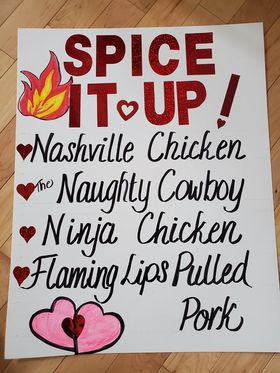 SPICE
IT UP!
Nashville Chicken
The Naughty Cowboy
Ninja Chicken
Flaming Lips Pulled
Pork